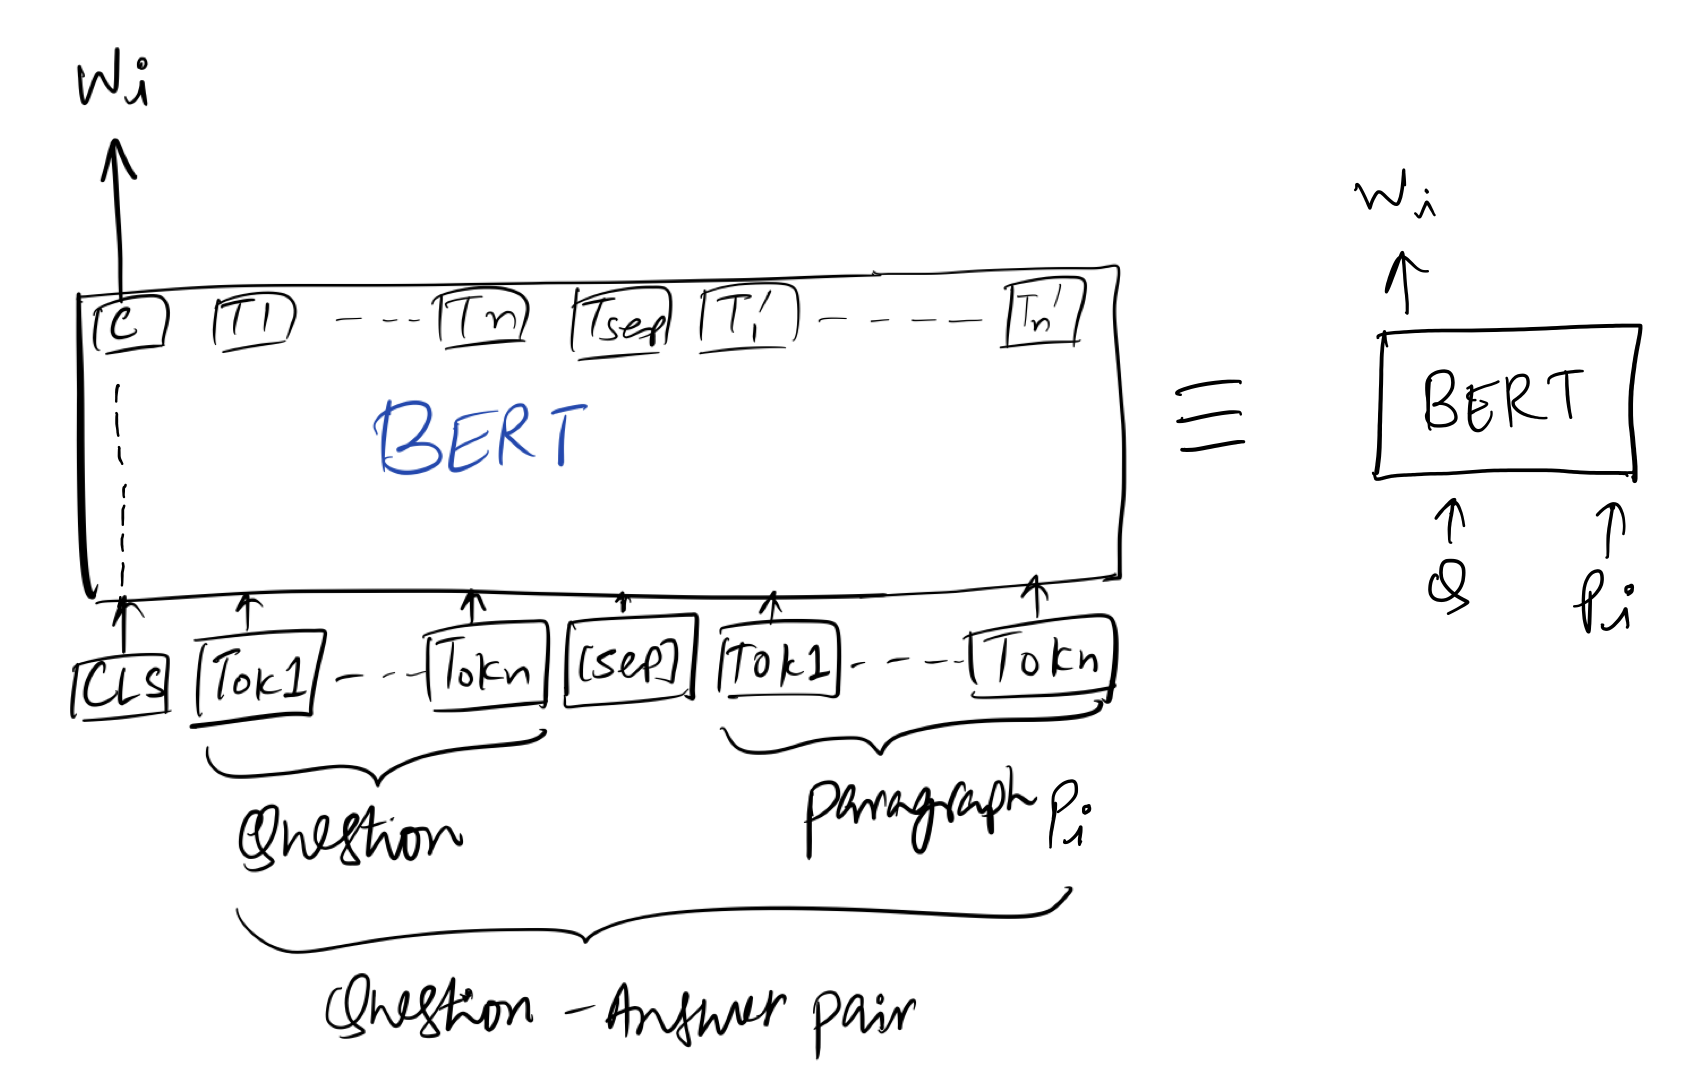 Wi
C T1 ---- Tn Tsep T1' ----- Tn'
BERT
CLS Tok1 ---- Tokn [sep] Tok1 ----- Tokn
Question
Paragraph Pi
Question - Answer pair
≡
Wi
BERT
Q Pi